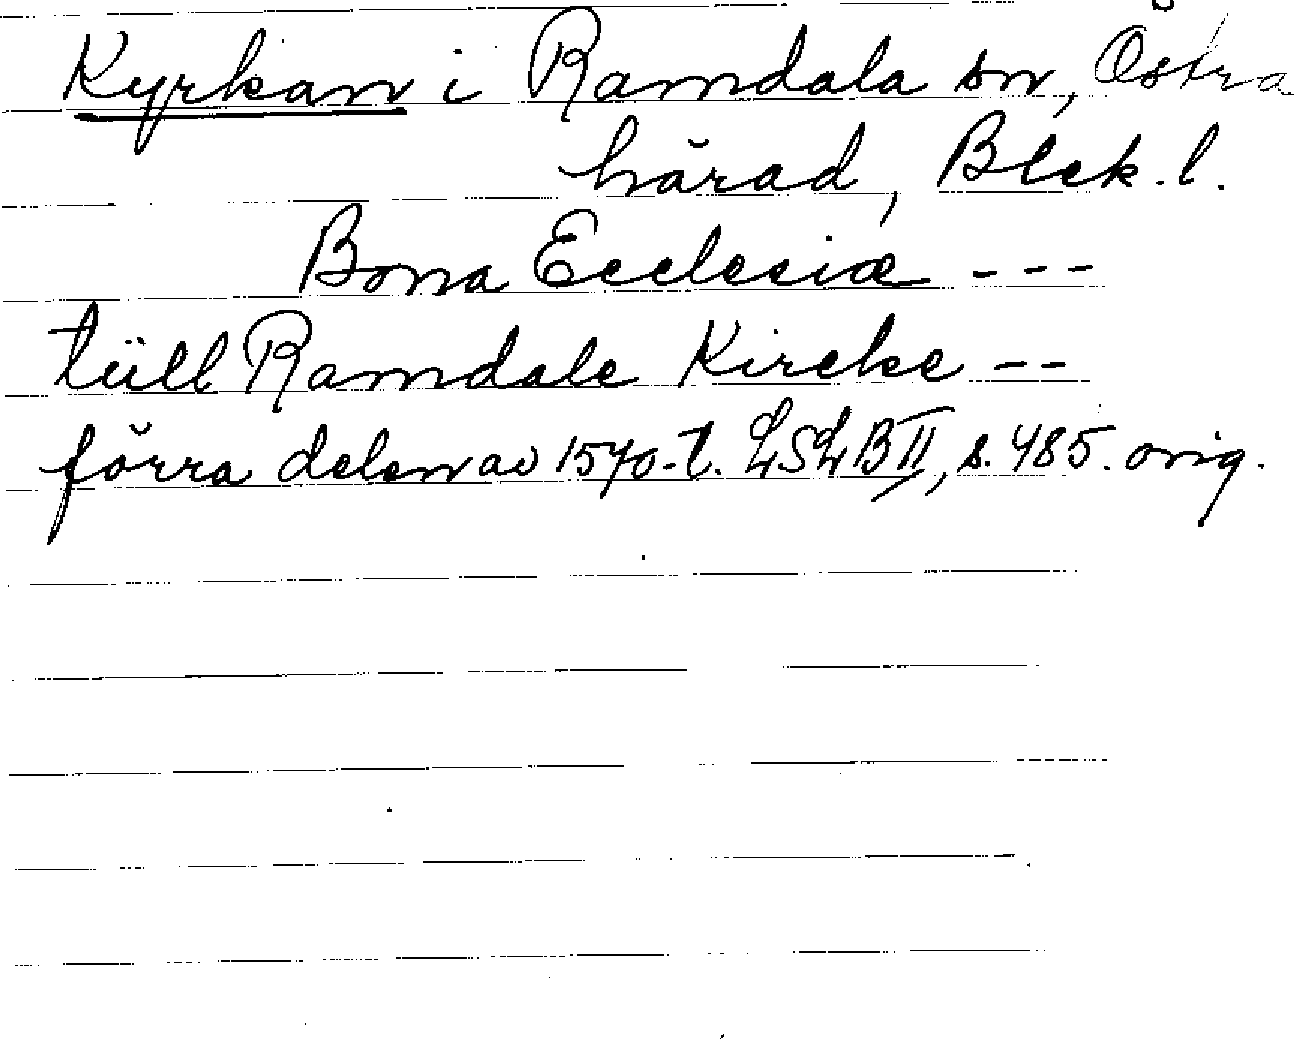 Kyrkan i Ramdala sn, Östra
härad, Blek. l.
Bona Ecclesiæ - - -
tüll Ramdale Kircke - -
förra delen av 1570-t. LSLB II, s. 485. orig.